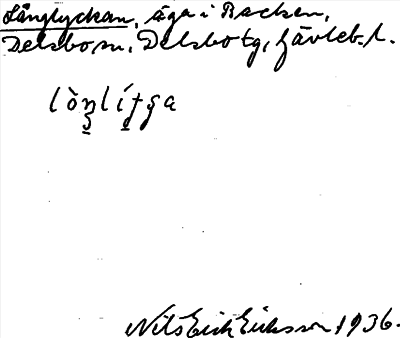 Långlyckan, äga i Backen,
Delsbo sn, Delsbo tg, Gävleb. l.
Nils Erik Eriksson 1936.